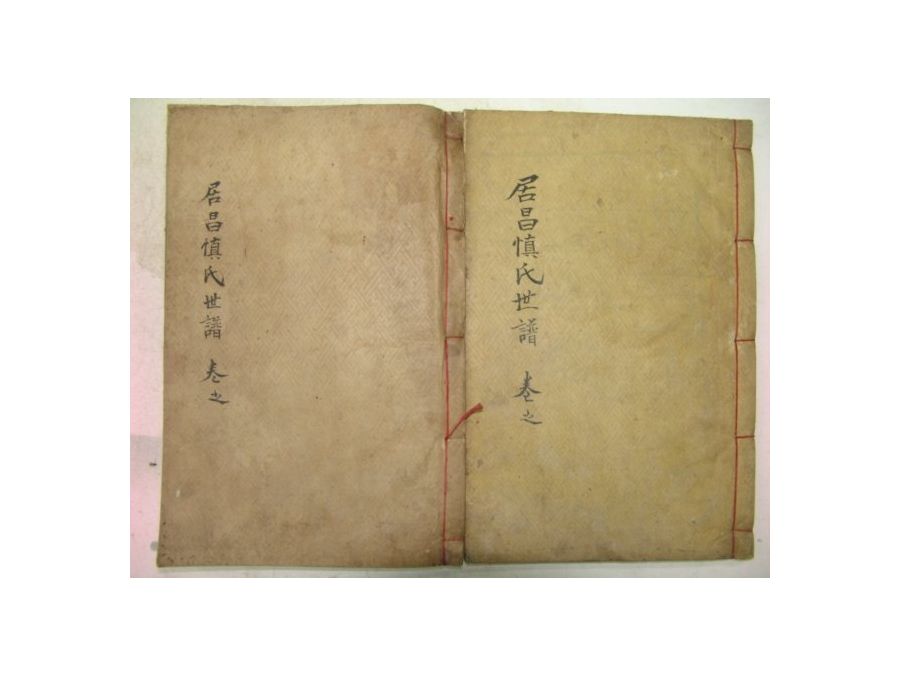 居昌愼氏世譜 卷之
居昌愼氏世譜 卷之